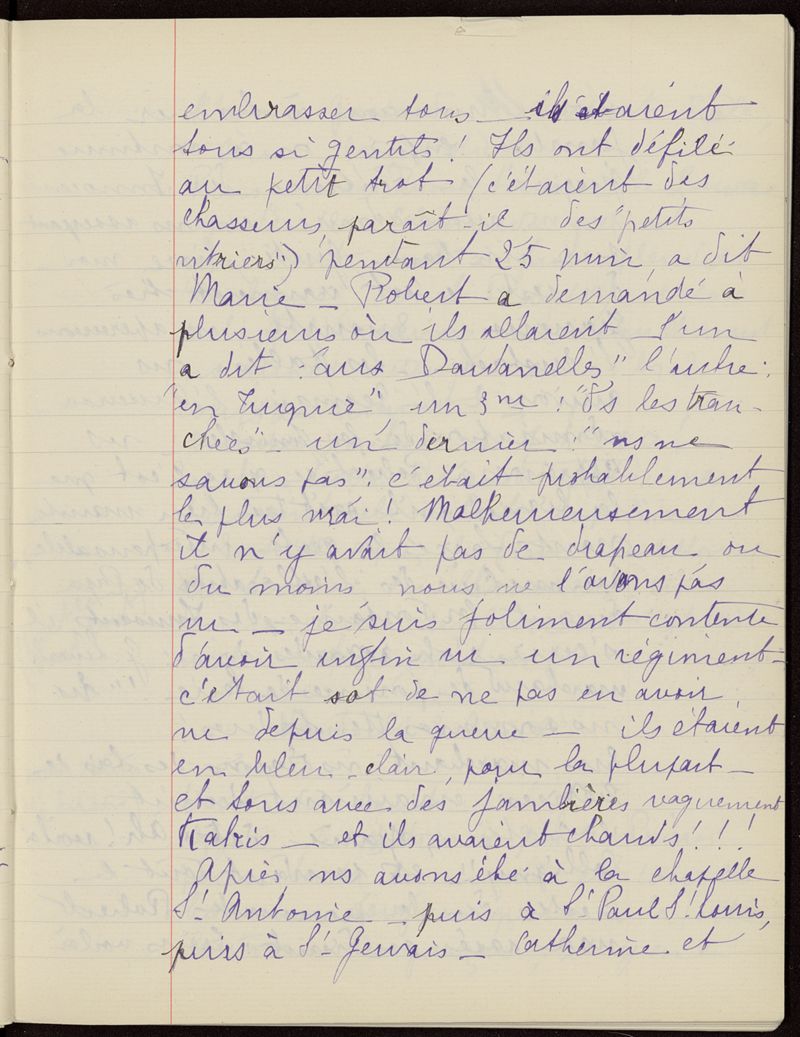 embrasser tous — ils étaient
tous si gentils! Ils ont défilé
au petit trot (c'étaient des
chasseurs, paraît-il des "petits
vitriers") pendant 25 min, a dit
Marie — Robert a demandé à
plusieurs où ils allaient — l'un
a dit : "aux Dardanelles" l'autre :
"en Turquie", un 3me : "ds les tran-
chées" — un dernier : "ns ne
savons pas" : c'était probablement
le plus vrai! Malheureusement
il n'y avait pas de drapeau ou
du moins nous ne l'avons pas
vu — je suis joliment contente
d'avoir enfin vu un régiment —
c'était sot de ne pas en avoir
vu depuis la guerre — ils étaient
en bleu-clair, pour la plupart —
et tous avec des jambières vaguement
Kakis — et ils avaient chauds!!!
Après ns avons été à la chapelle
St Antoine — puis à St Paul St Louis,
puis à St Gervais — Catherine et